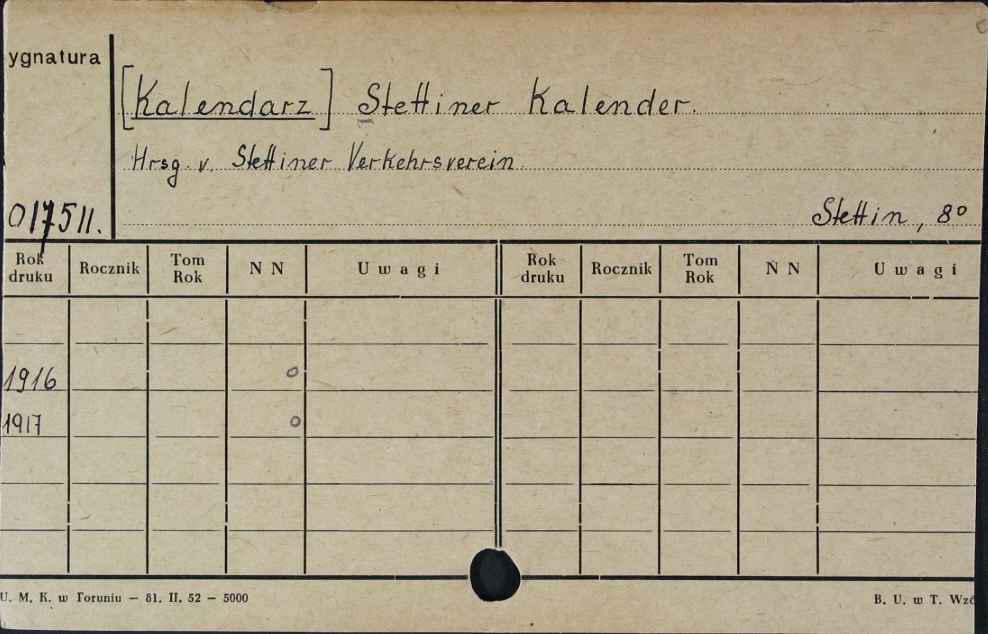 ygnatura
[Kalendarz] Stettiner Kalender.
Hrsg. v. Stettiner Verkehrsverein.
017511.
Stettin, 8°
Rok druku Rocznik Tom Rok N N Uwagi Rok druku Rocznik Tom Rok N N Uwagi
1916 o
1917 o
U. M. K. w Toruniu — 81. II. 52 — 5000
B. U. w T. Wzó